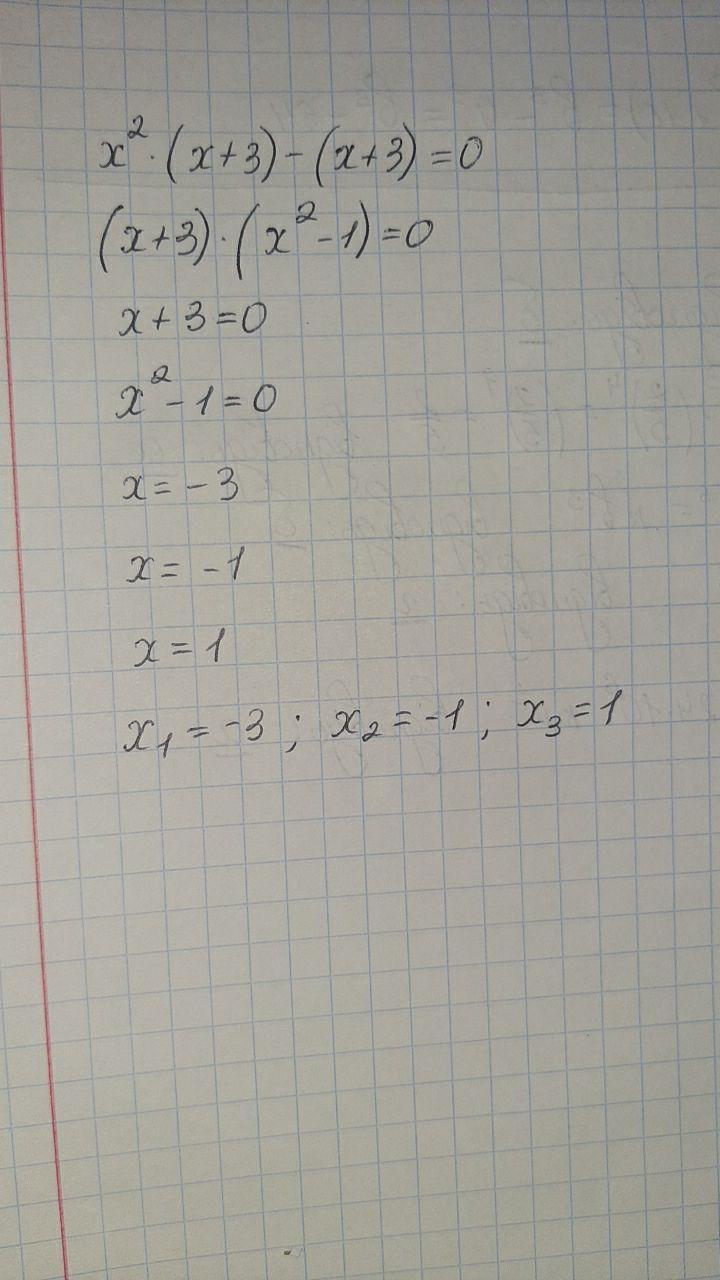 x²·(x+3)-(x+3)=0
(x+3)·(x²-1)=0
x+3=0
x²-1=0
x=-3
x=-1
x=1
x₁=-3; x₂=-1; x₃=1